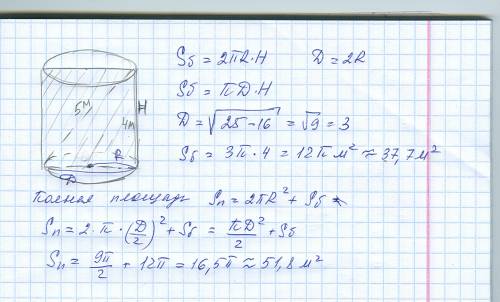 Sб = 2πR·H D = 2R
Sб = πD·H
D = √25-16 = √9 = 3
Sб = 3π·4 = 12π м² ≈ 37,7 м²
5м
H
4м
R
D
Полная площадь Sп = 2πR² + Sб
Sп = 2·π·(D/2)² + Sб = πD²/2 + Sб
Sп = 9π/2 + 12π = 16,5π ≈ 51,8 м²